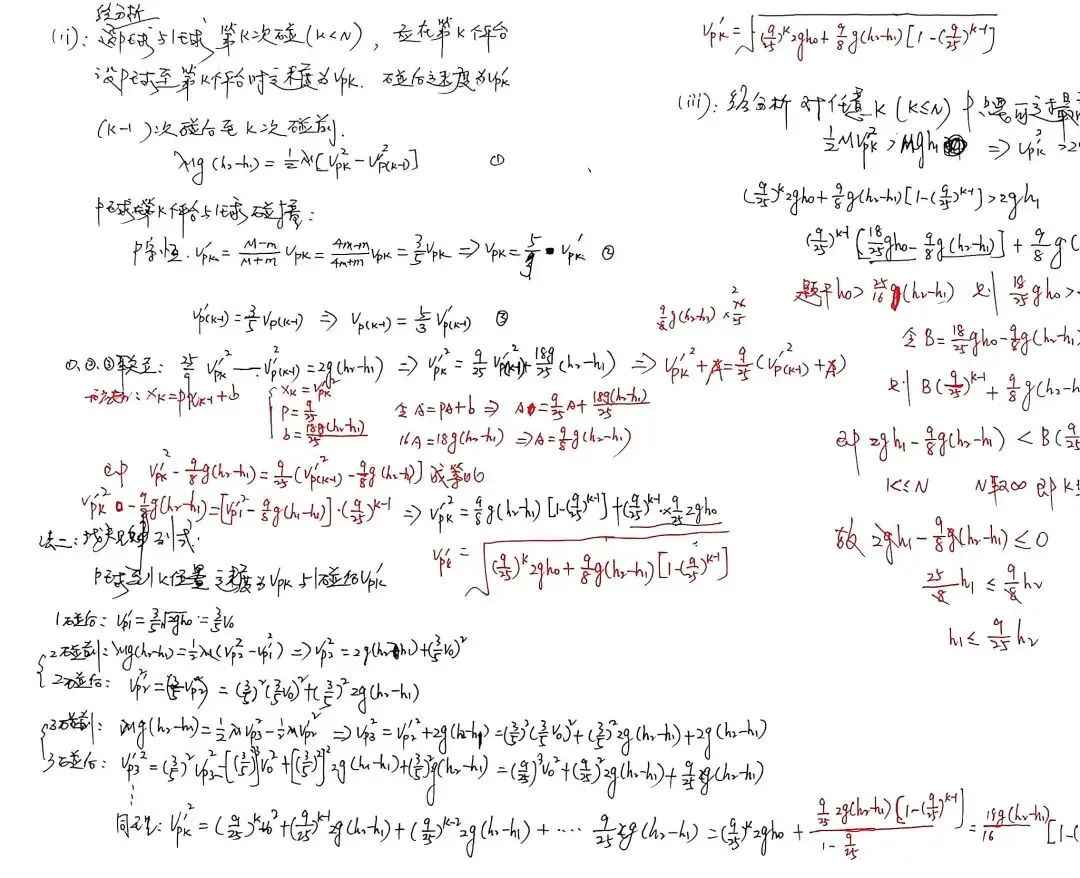 经分析
(ii): 设P球与1球第K次碰(K<N),应在第K个平台
设P球至第K个平台时速度为Vpk. 碰后速度为Vpk'
(K-1)次碰后至K次碰前.
Mg(h₂-h₁)=½M[Vpk²-V'p(k-1)²] ①
P球在第K个平台与1球碰撞:
Vpk'=(M-m)/(M+m) Vpk=(4m-m)/(4m+m) Vpk=3/5 Vpk ⇒ Vpk=5/3 Vpk' ②
V'p(k-1)=3/5 Vp(k-1) ⇒ Vp(k-1)=5/3 V'p(k-1) ③
①、②、③联立: 25/9 Vpk'²-V'p(k-1)²=2g(h₂-h₁) ⇒ Vpk'²=9/25 V'p(k-1)²+18g/25(h₂-h₁) ⇒ Vpk'²+A=9/25(V'p(k-1)²+A)
9/8 g(h₂-h₁)×
: Xk=pXk-1+b
Xk=Vpk'²
p=9/25
b=18g(h₂-h₁)/25
令A=pA+b ⇒ A=9/25 A+18g(h₂-h₁)/25
16A=18g(h₂-h₁) ⇒ A=9/8 g(h₂-h₁)
即 Vpk'²-9/8 g(h₂-h₁)=9/25(V'p(k-1)²-9/8 g(h₂-h₁)] 成等比
Vpk'²-9/8 g(h₂-h₁)=[Vp1'²-9/8 g(h₂-h₁)]·(9/25)^(k-1) ⇒ Vpk'²=9/8 g(h₂-h₁)[1-(9/25)^(k-1)]+(9/25)^(k-1)×9/25 2gh₀
Vpk'=√((9/25)^k 2gh₀+9/8 g(h₂-h₁)[1-(9/25)^(k-1)])
法二:
P球至K位置速度为Vpk 与1碰后Vpk'
1碰后: Vp1'=3/5√2gh₀=3/5 V₀
2碰前: Mg(h₂-h₁)=½M(Vp2²-Vp1'²) ⇒ Vp2²=2g(h₂-h₁)+(3/5 V₀)²
2碰后: Vp2'²=(3/5 Vp2)²=(3/5)²(3/5 V₀)²+(3/5)²2g(h₂-h₁)
3碰前: Mg(h₂-h₁)=½MVp3²-½MVp2'² ⇒ Vp3²=Vp2'²+2g(h₂-h₁)=(3/5)²(3/5 V₀)²+(3/5)²2g(h₂-h₁)+2g(h₂-h₁)
3碰后: Vp3'²=(3/5)²Vp3²=[(3/5)²]³V₀²+[(3/5)²]²2g(h₂-h₁)+(3/5)²2g(h₂-h₁)=(9/25)³V₀²+(9/25)²2g(h₂-h₁)+9/25 2g(h₂-h₁)
⋮
同理: Vpk'²=(9/25)^k V₀²+(9/25)^(k-1) 2g(h₂-h₁)+(9/25)^(k-2) 2g(h₂-h₁)+····9/25 2g(h₂-h₁)=(9/25)^k 2gh₀+9/25 2g(h₂-h₁)[1-(9/25)^(k-1)]/(1-9/25)=18g(h₂-h₁)/16 [1-(
Vpk'=√((9/25)^k 2gh₀+9/8 g(h₂-h₁)[1-(9/25)^(k-1)])
(iii): 经分析 对任意K(K≤N)
½MVpk'²>Mgh₁ ⇒ Vpk'²>2
(9/25)^k 2gh₀+9/8 g(h₂-h₁)[1-(9/25)^(k-1)]>2gh₁
(9/25)^(k-1)[18/25 gh₀-9/8 g(h₂-h₁)]+9/8 g(
题干h₀>25/16(h₂-h₁) 则 18/25 gh₀>
令B=18/25 gh₀-9/8 g(h₂-h₁)
则 B(9/25)^(k-1)+9/8 g(h₂-h
即 2gh₁-9/8 g(h₂-h₁)<B(9/25
K≤N N取∞ 即K
故 2gh₁-9/8 g(h₂-h₁)≤0
25/8 h₁≤9/8 h₂
h₁≤9/25 h₂